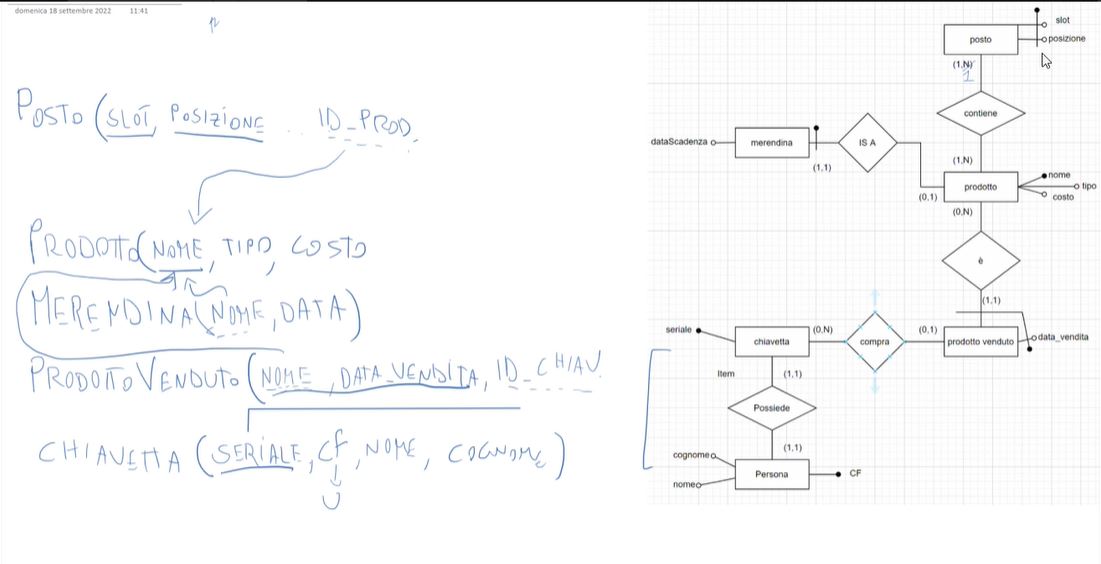 domenica 18 settembre 2022 11:41
POSTO (SLOT, POSIZIONE .. ID_PROD.
PRODOTTO (NOME, TIPO, COSTO
MERENDINA (NOME, DATA)
PRODOTTO VENDUTO (NOME, DATA_VENDITA, ID_CHIAV.
CHIAVETTA (SERIALE, CF, NOME, COGNOME)
U
slot
posto
posizione
(1,N)
1
contiene
dataScadenza
merendina
IS A
(1,1)
(1,N)
nome
prodotto
tipo
costo
(0,1)
(0,N)
è
(1,1)
seriale
(0,N)
(0,1)
chiavetta
compra
prodotto venduto
data_vendita
Item
(1,1)
Possiede
(1,1)
cognome
Persona
CF
nome